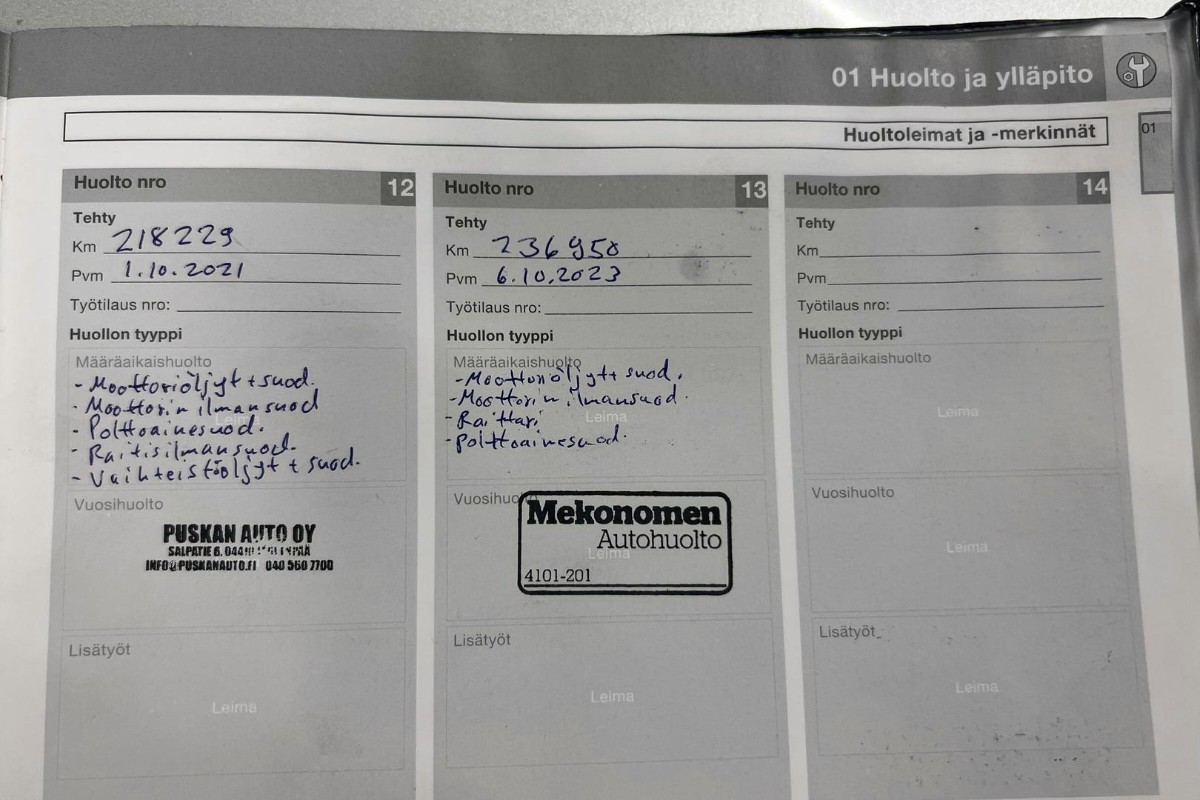 01 Huolto ja ylläpito
Huoltoleimat ja -merkinnät
01
Huolto nro 12
Tehty
Km 218229
Pvm 1.10.2021
Työtilaus nro:
Huollon tyyppi
Määräaikaishuolto
- Moottoriöljyt + suod.
- Moottorin ilmansuod
- Polttoainesuod.
- Raitisilmansuod.
- Vaihteistoöljyt + suod.
Vuosihuolto
PUSKAN AUTO OY
SALPATIE 6.
INFO@PUSKANAUTO.FI 040 560 7700
Lisätyöt
Leima
Huolto nro 13
Tehty
Km 236950
Pvm 6.10.2023
Työtilaus nro:
Huollon tyyppi
Määräaikaishuolto
- Moottoriöljyt + suod.
- Moottorin ilmansuod.
Leima
- Raittari
- polttoainesuod.
Vuosihuolto
Mekonomen
Autohuolto
Leima
4101-201
Lisätyöt
Leima
Huolto nro 14
Tehty
Km
Pvm
Työtilaus nro:
Huollon tyyppi
Määräaikaishuolto
Leima
Vuosihuolto
Leima
Lisätyöt
Leima